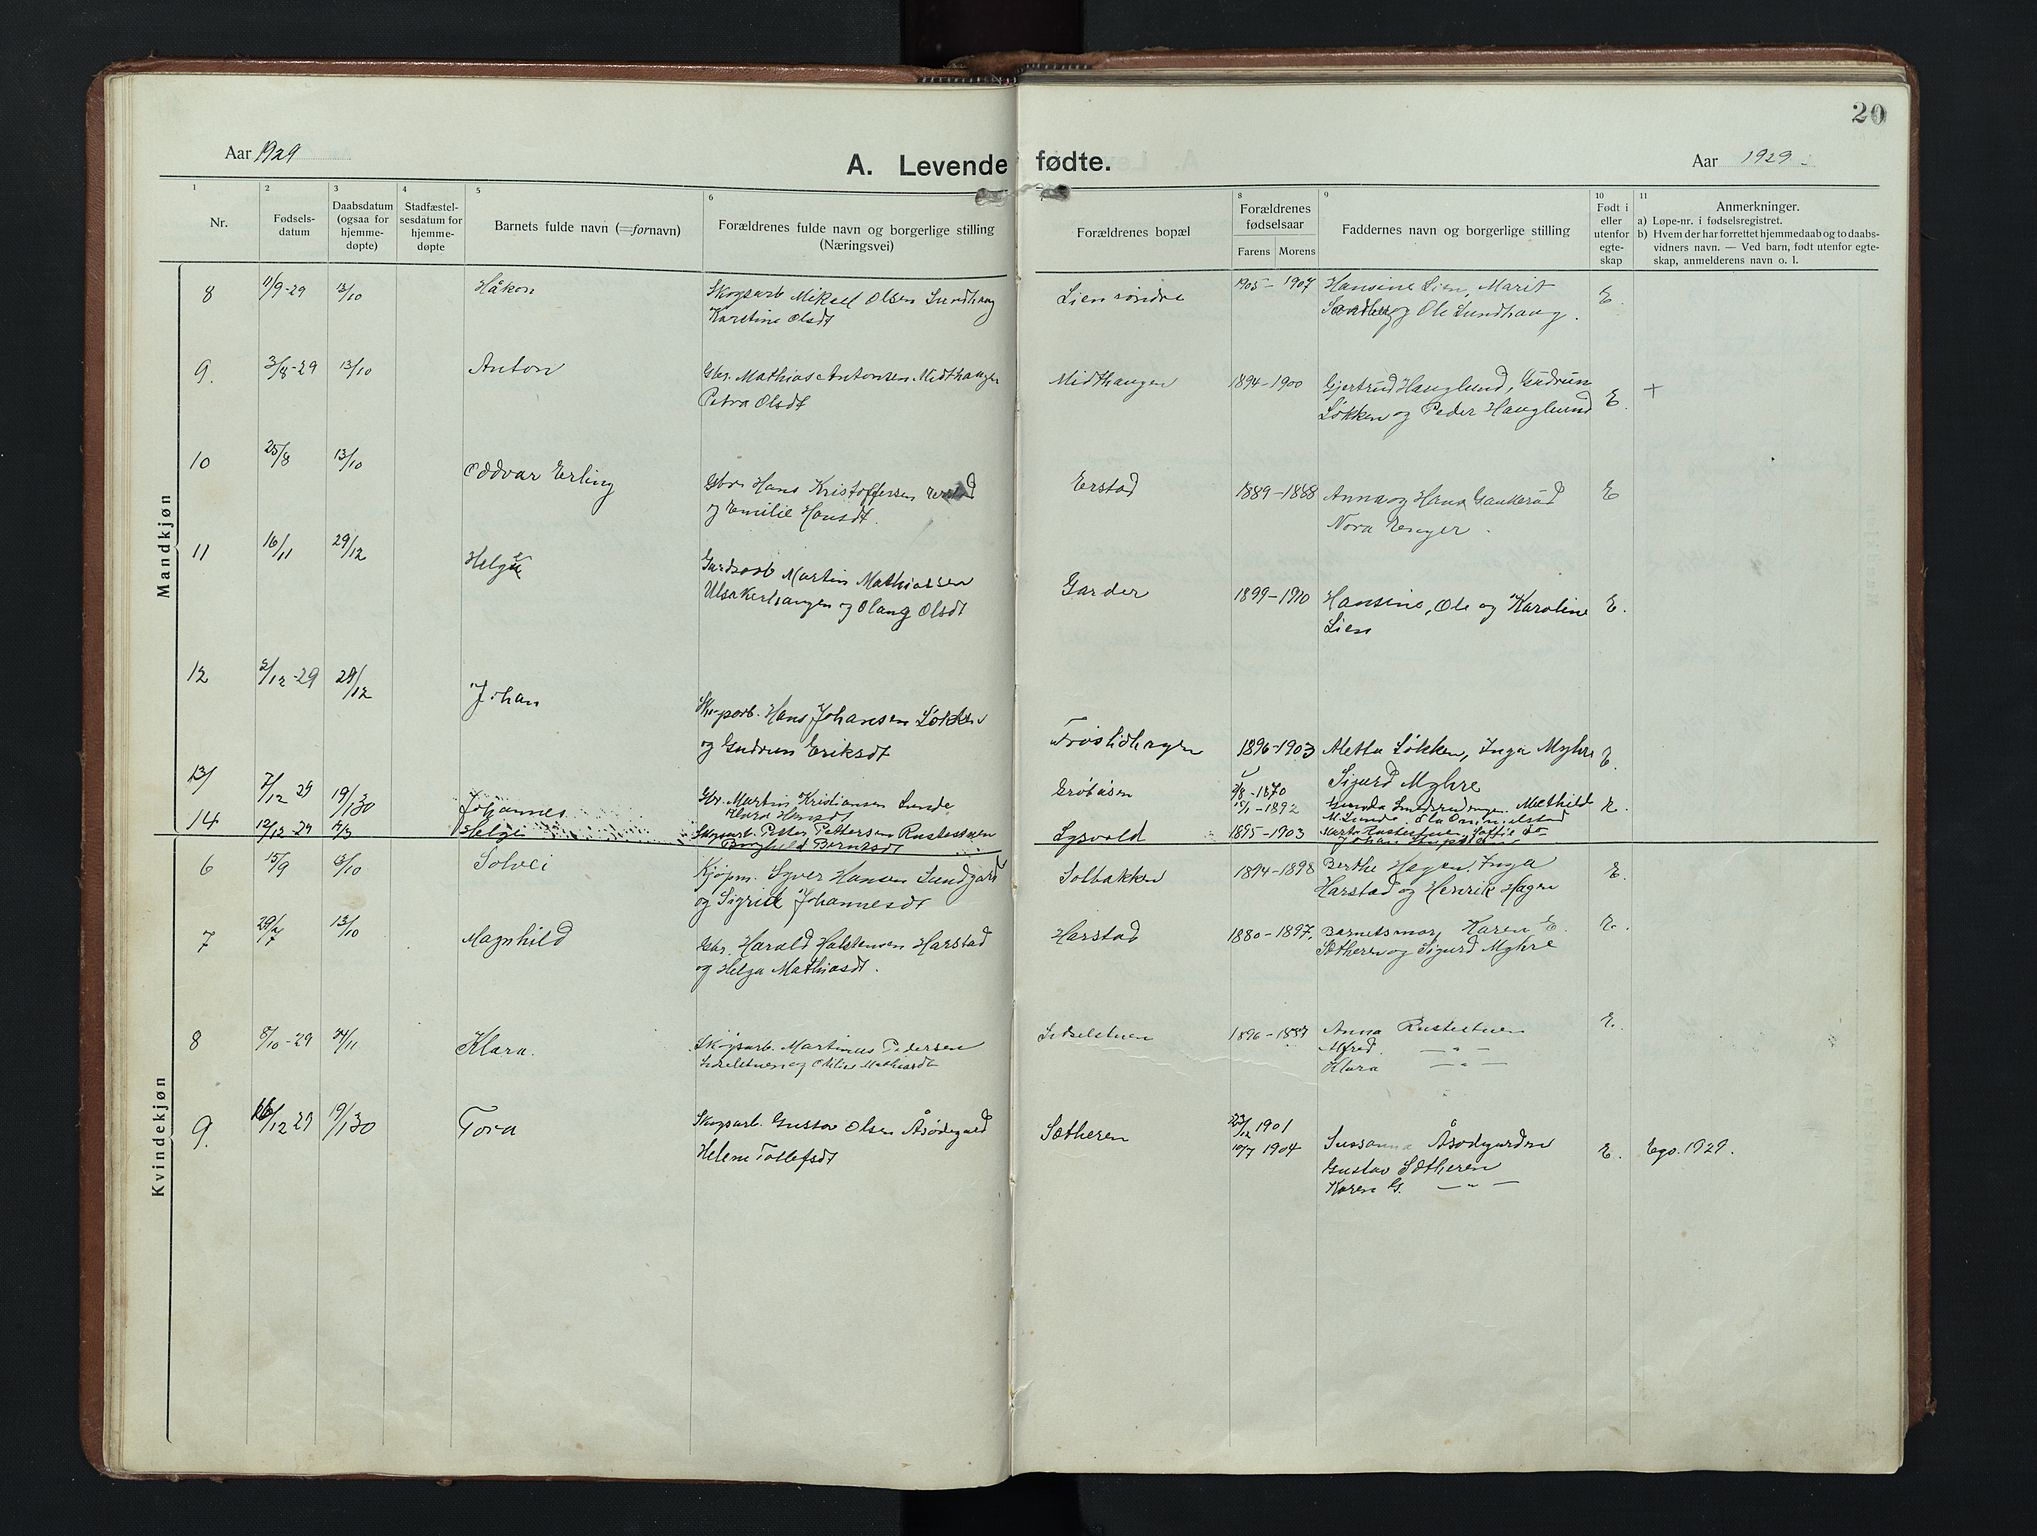 20
Aar 1929
A. Levende fødte.
Aar 1929.
1 2 3 4 5 6 8 9 10 11
Nr.
Fødsels-
datum
Daabsdatum
(ogsaa for
hjemme-
døpte)
Stadfæstel-
sesdatum for
hjemme-
døpte
Barnets fulde navn (=fornavn)
Forældrenes fulde navn og borgerlige stilling
(Næringsvei)
Forældrenes bopæl
Forældrenes
fødselsaar
Farens Morens
Faddernes navn og borgerlige stilling
Født i
eller
utenfor
egte-
skap
Anmerkninger.
a) Løpe-nr. i fødselsregistret.
b) Hvem der har forrettet hjemmedaab og to daabs-
vidners navn. — Ved barn, født utenfor egte-
skap, anmelderens navn o. l.
Mandkjøn
8 11/9-29 13/10 Håkon Skogsarb Mikael Olsen Sundhaug Lien søndre 1905-1907 Hansine Lien, Marit E.
Karstine Olsdt og Ole Sundhaug.
9. 3/8-29 13/10 Anton Gbr. Mathias Antonsen Midthaugen Midthaugen 1894-1900 Gjertrud Hauglund, Gudrun E. +
Petra Olsdt Løkken og Peder Hauglund
10 25/8 13/10 Oddvar Erling Gbr. Hans Kristoffersen Erstad Erstad 1889-1888 Anna og Hans E
og Emilie Hansdt. Nora Enger.
11 16/11 29/12 Helge Gardsarb Martin Mathiassen Garder 1899-1910 Hansine, Ole og Karoline E.
og Olaug Olsdt Lien
12 2/12-29 29/12 Johan Skogsarb. Hans Johansen Løkken 1896-1903 Aletta Løkken, Inga Myhre E.
og Gudrun Eriksdt Sigurd Myhre
13 7/12 29 19/1 30 Johannes Gbr. Martin Kristiansen Lunde Grøtåsen 1870 Mathilde E.
1892 M. Lunde
14 12/12-29 Helge Skogsarb. Petter Pettersen Rustestuen Lysvold 1895-1903
Borghild Berntsdt
Kvindekjøn
6 15/9 6/10 Solvei Kjøpm. Syver Hansen Lundgard Solbakken 1894-1898 Berthe Hagen, Inga E.
og Sigrid Johannesdt Harstad og Henrik Hagen
7 29/7 13/10 Magnhild Gbr. Harald Halstensen Harstad Harstad 1880-1897. Barnets mor, Karen E. E.
og Helga Mathiasdt. Sætheren og Sigurd Myhre
8 8/10-29 24/11 Klara. Skogsarb. Martinus Pedersen 1896-1887 Anna Rustestuen E.
og Otilie Mathiasdt Alfred. — " —
Klara — " —
9. 16/12 29 19/1 30 Tora Skogsarb. Gustav Olsen Åsødegård Sætheren 23/12 1901
Helene Tollefsdt 10/7 1904 Sussanna Åsødegården E. Ego. 1929.
Gustav Sætheren
Karen G. — " —